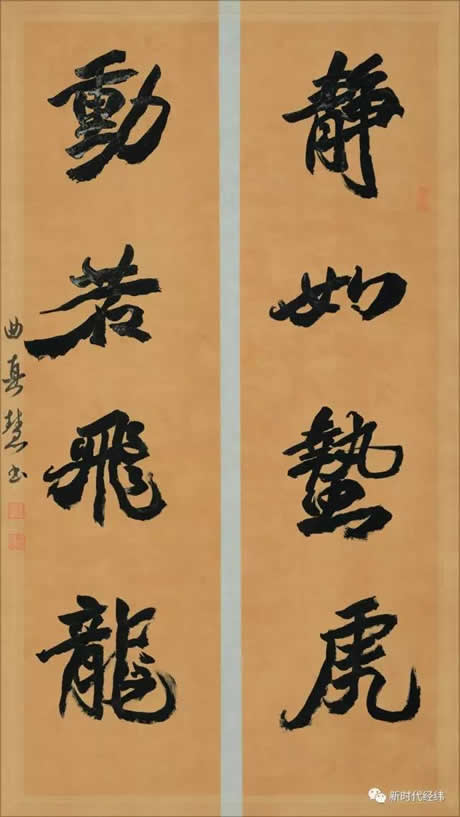 静如蟄虎
動若飛龍
曲真慧书
新时代经纬